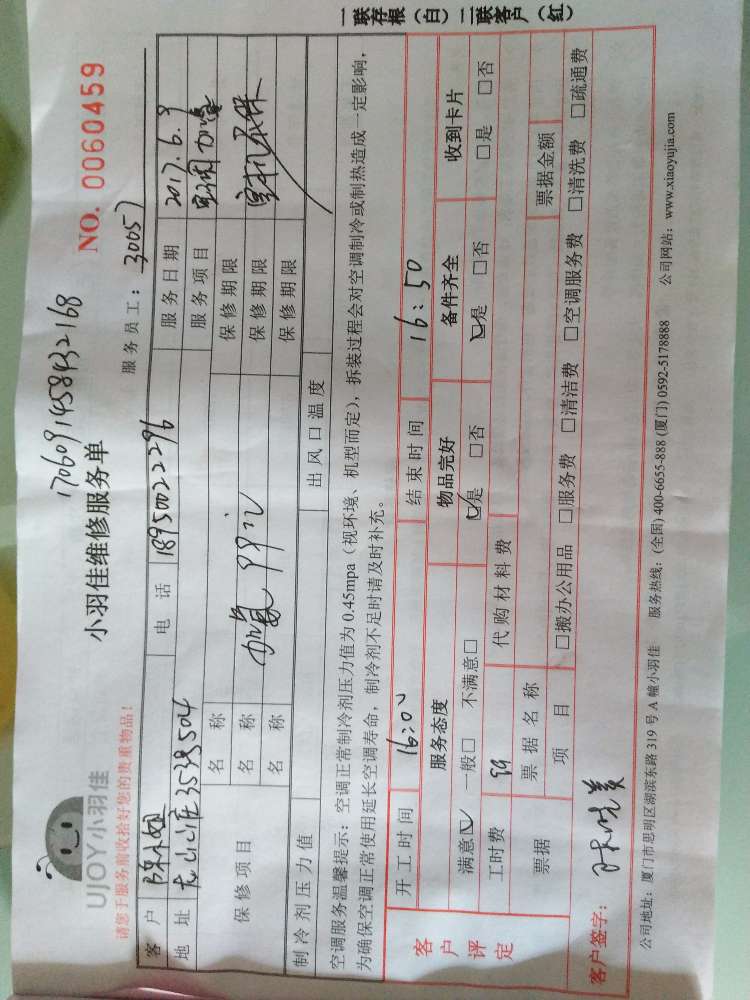 一联存根（白）二联客户（红）
170609145843 2168
UJOY小羽佳
小羽佳维修服务单
NO. 0060459
请您于服务前收拾好您的贵重物品！
服务员工：30057
客户 陈小姐 电话 18950022296 服务日期 2017.6.9
地址 龙山山庄35#504 服务项目 空调加氟
保修项目 名称 保修期限
名称 加氟 99元 保修期限
名称 保修期限
制冷剂压力值 出风口温度
空调服务温馨提示：空调正常制冷剂压力值为 0.45mpa（视环境、机型而定），拆装过程会对空调制冷或制热造成一定影响，
为确保空调正常使用延长空调寿命，制冷剂不足时请及时补充。
客户评定
开工时间 16:00 结束时间 16:50
服务态度 物品完好 备件齐全 收到卡片
满意☑ 一般□ 不满意□ ☑是 □否 ☑是 □否 □是 □否
工时费 99 代购材料费
票据 票据名称 票据金额
项目 □搬办公用品 □服务费 □清洁费 □空调服务费 □清洗费 □疏通费
客户签字：
公司地址：厦门市思明区湖滨东路 319 号 A 幢小羽佳 服务热线：(全国) 400-6655-888 (厦门) 0592-5178888 公司网站：www.xiaoyujia.com